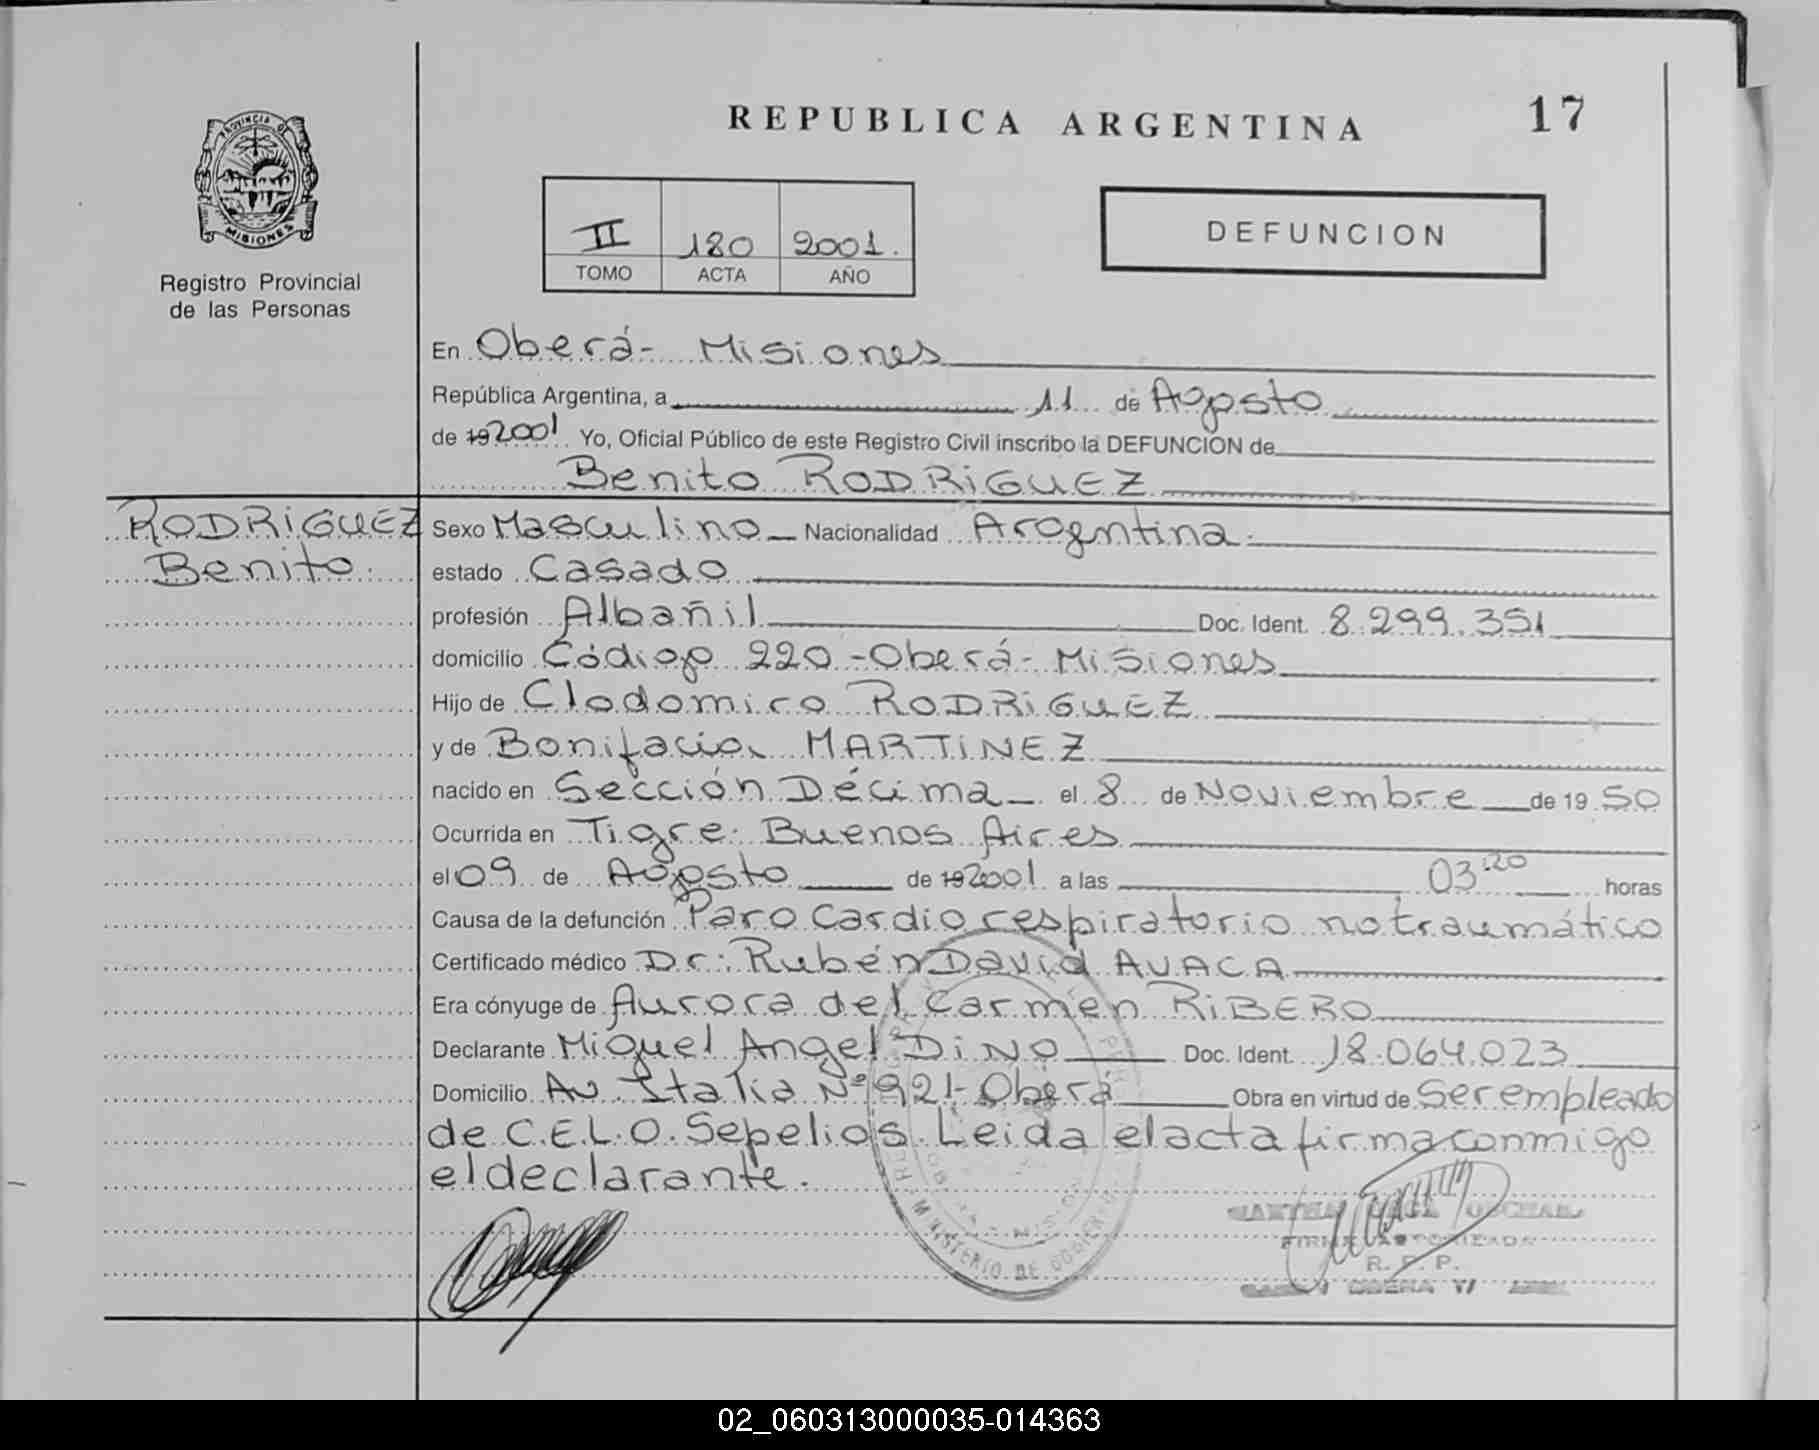 REPUBLICA ARGENTINA 17
PROVINCIA DE
MISIONES
Registro Provincial
de las Personas
II 180 2001.
TOMO ACTA AÑO
DEFUNCION
En Oberá- Misiones
República Argentina, a 11 de Agosto
de 19 2001 Yo, Oficial Público de este Registro Civil inscribo la DEFUNCION de
Benito RODRIGUEZ
RODRIGUEZ
Benito.
Sexo Masculino Nacionalidad Argentina.
estado Casado
profesión Albañil Doc. Ident. 8.299.351
domicilio Código 220 -Oberá- Misiones
Hijo de Clodomiro RODRIGUEZ
y de Bonifacia MARTINEZ
nacido en Sección Décima el 8 de Noviembre de 19 50
Ocurrida en Tigre. Buenos Aires
el 09 de Agosto de 19 2001 a las 03:20 horas
Causa de la defunción Paro Cardio respiratorio no traumático
Certificado médico Dr: Rubén David AVACA
Era cónyuge de Aurora del Carmen RIBERO
Declarante Miguel Angel DINO Doc. Ident. 18.064.023
Domicilio Av. Italia Nº 921- Oberá Obra en virtud de Ser empleado
de C.E.L.O. Sepelios. Leida el acta firma conmigo
el declarante.
MINISTERIO DE GOBIERNO
R. P. P.
02_060313000035-014363